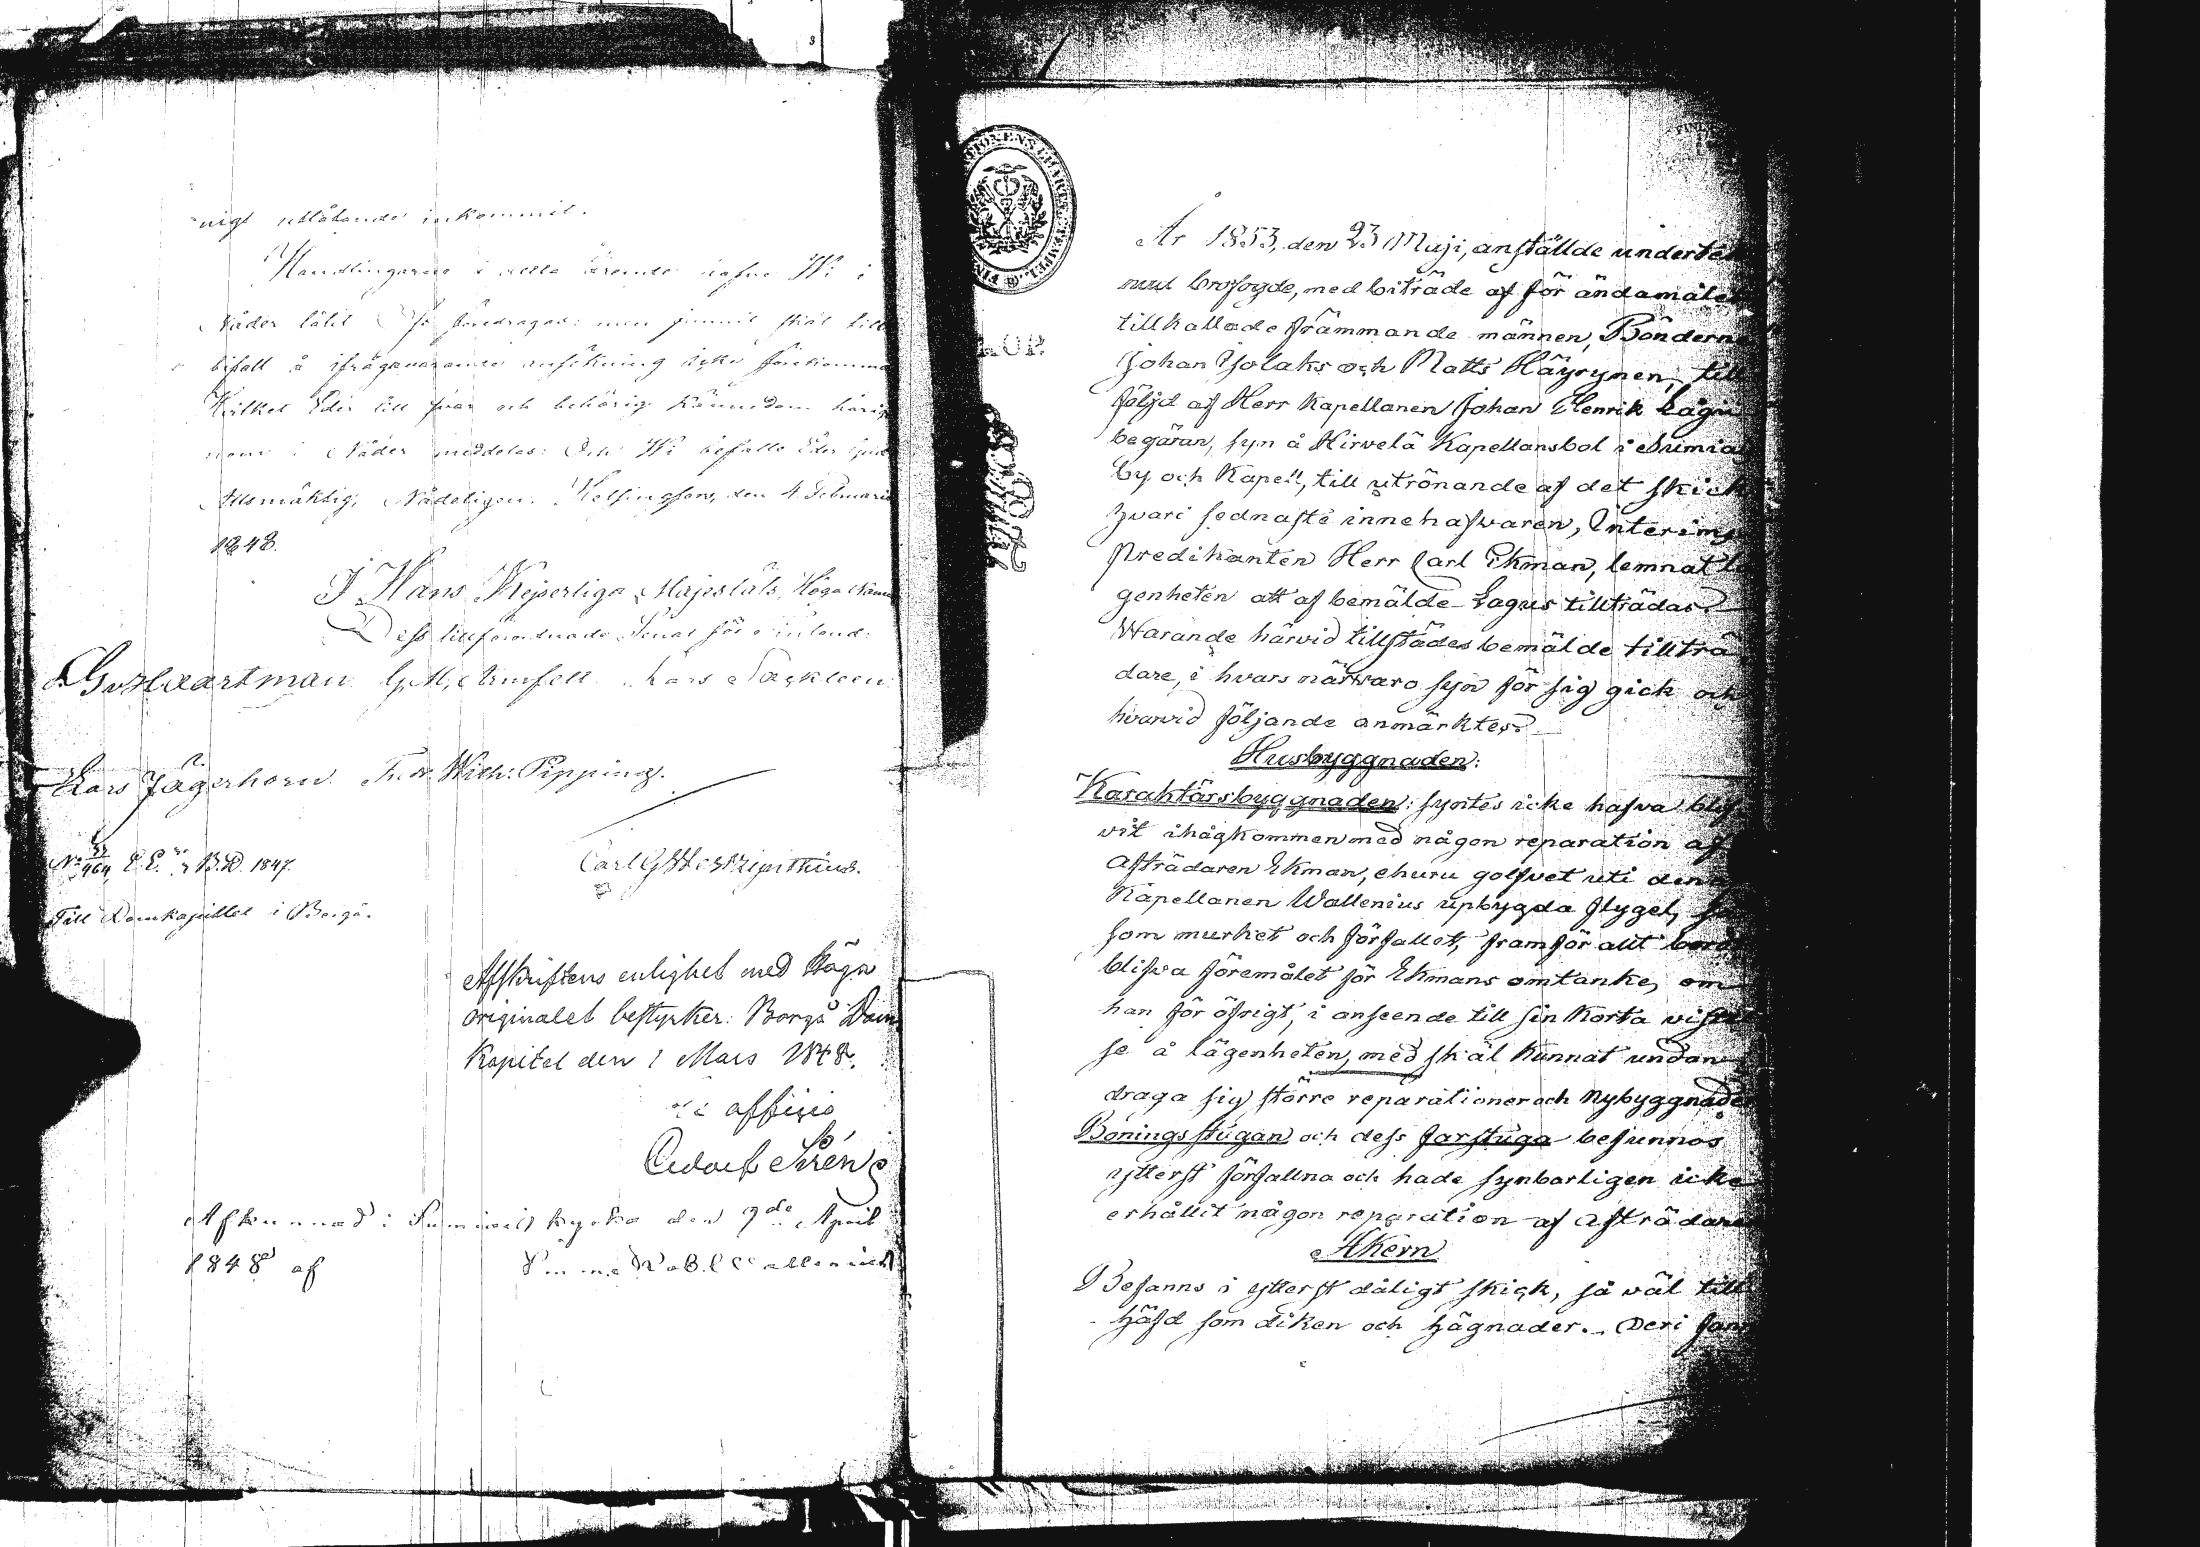 nigt utlåtande inkommit.
Handlingarne i detta ärende hafve Wi i
Nåder låtit Oss föredragas: men funnit skäl till
bifall å ifrågavarande ansökning icke förekomma
Hvilket Eder till svar och behörig kännedom härige
nom i Nåder meddelas: Och Wi befalle Eder Gud
Allsmäktig, Nådeligen. Helsingfors, den 4 Februarii
1848.
I Hans Kejserliga Majestäts Höga Namn
Dess tillförordnade Senat för Finland:
Haartman G. M. Armfelt Lars Sackleen
Lars Jägerhorn Fredr. Wilh. Pipping.
No 464 E.E. B.D. 1847.
Till Domkapitlet i Borgå.
Afskriftens enlighet med Höga
originalet bestyrker: Borgå Dom
Kapitel den 1 Mars 1848.
ex officio
Adolf Sirén
Afkunnad i Sumiais kyrka den 9de April
1848 af
År 1853, den 23 Maji, anställde underteck
nad brofogde, med biträde af för ändamålet
tillkallade främmande männen, Bönderne
Johan Isolaks och Matts Häyrynen, till
följd af Herr Kapellanen Johan Henrik Lagus
begäran, syn å Hirvelä Kapellansbol i Sumiais
by och Kapell, till utrönande af det skick
hvari sednaste innehafvaren, Interims
Predikanten Herr Carl Ekman, lemnat lä
genheten att af bemälde Lagus tillträdas
Warande härvid tillstädes bemälde tillträ
dare, i hvars närwaro syn för sig gick och
hvarvid följande anmärktes
Husbyggnaden:
Karaktärsbyggnaden: syntes icke hafva blif
vit ihågkommen med någon reparation af
Afträdaren Ekman, ehuru golfvet uti den af
Kapellanen Wallenius upbygda flygel, så
som murket och förfallet, framför allt bordt
blifva föremålet för Ekmans omtanke, om
han för öfrigt, i anseende till sin korta vistel
se å lägenheten, med skäl kunnat undan
draga sig större reparationer och nybyggnader
Boningsstugan och dess farstuga befunnos
ytterst förfallna och hade synbarligen icke
erhållit någon reparation af Afträdare
Åkern
Befanns i ytterst dåligt skick, så väl till
häfd som diken och hägnader. Deri fann